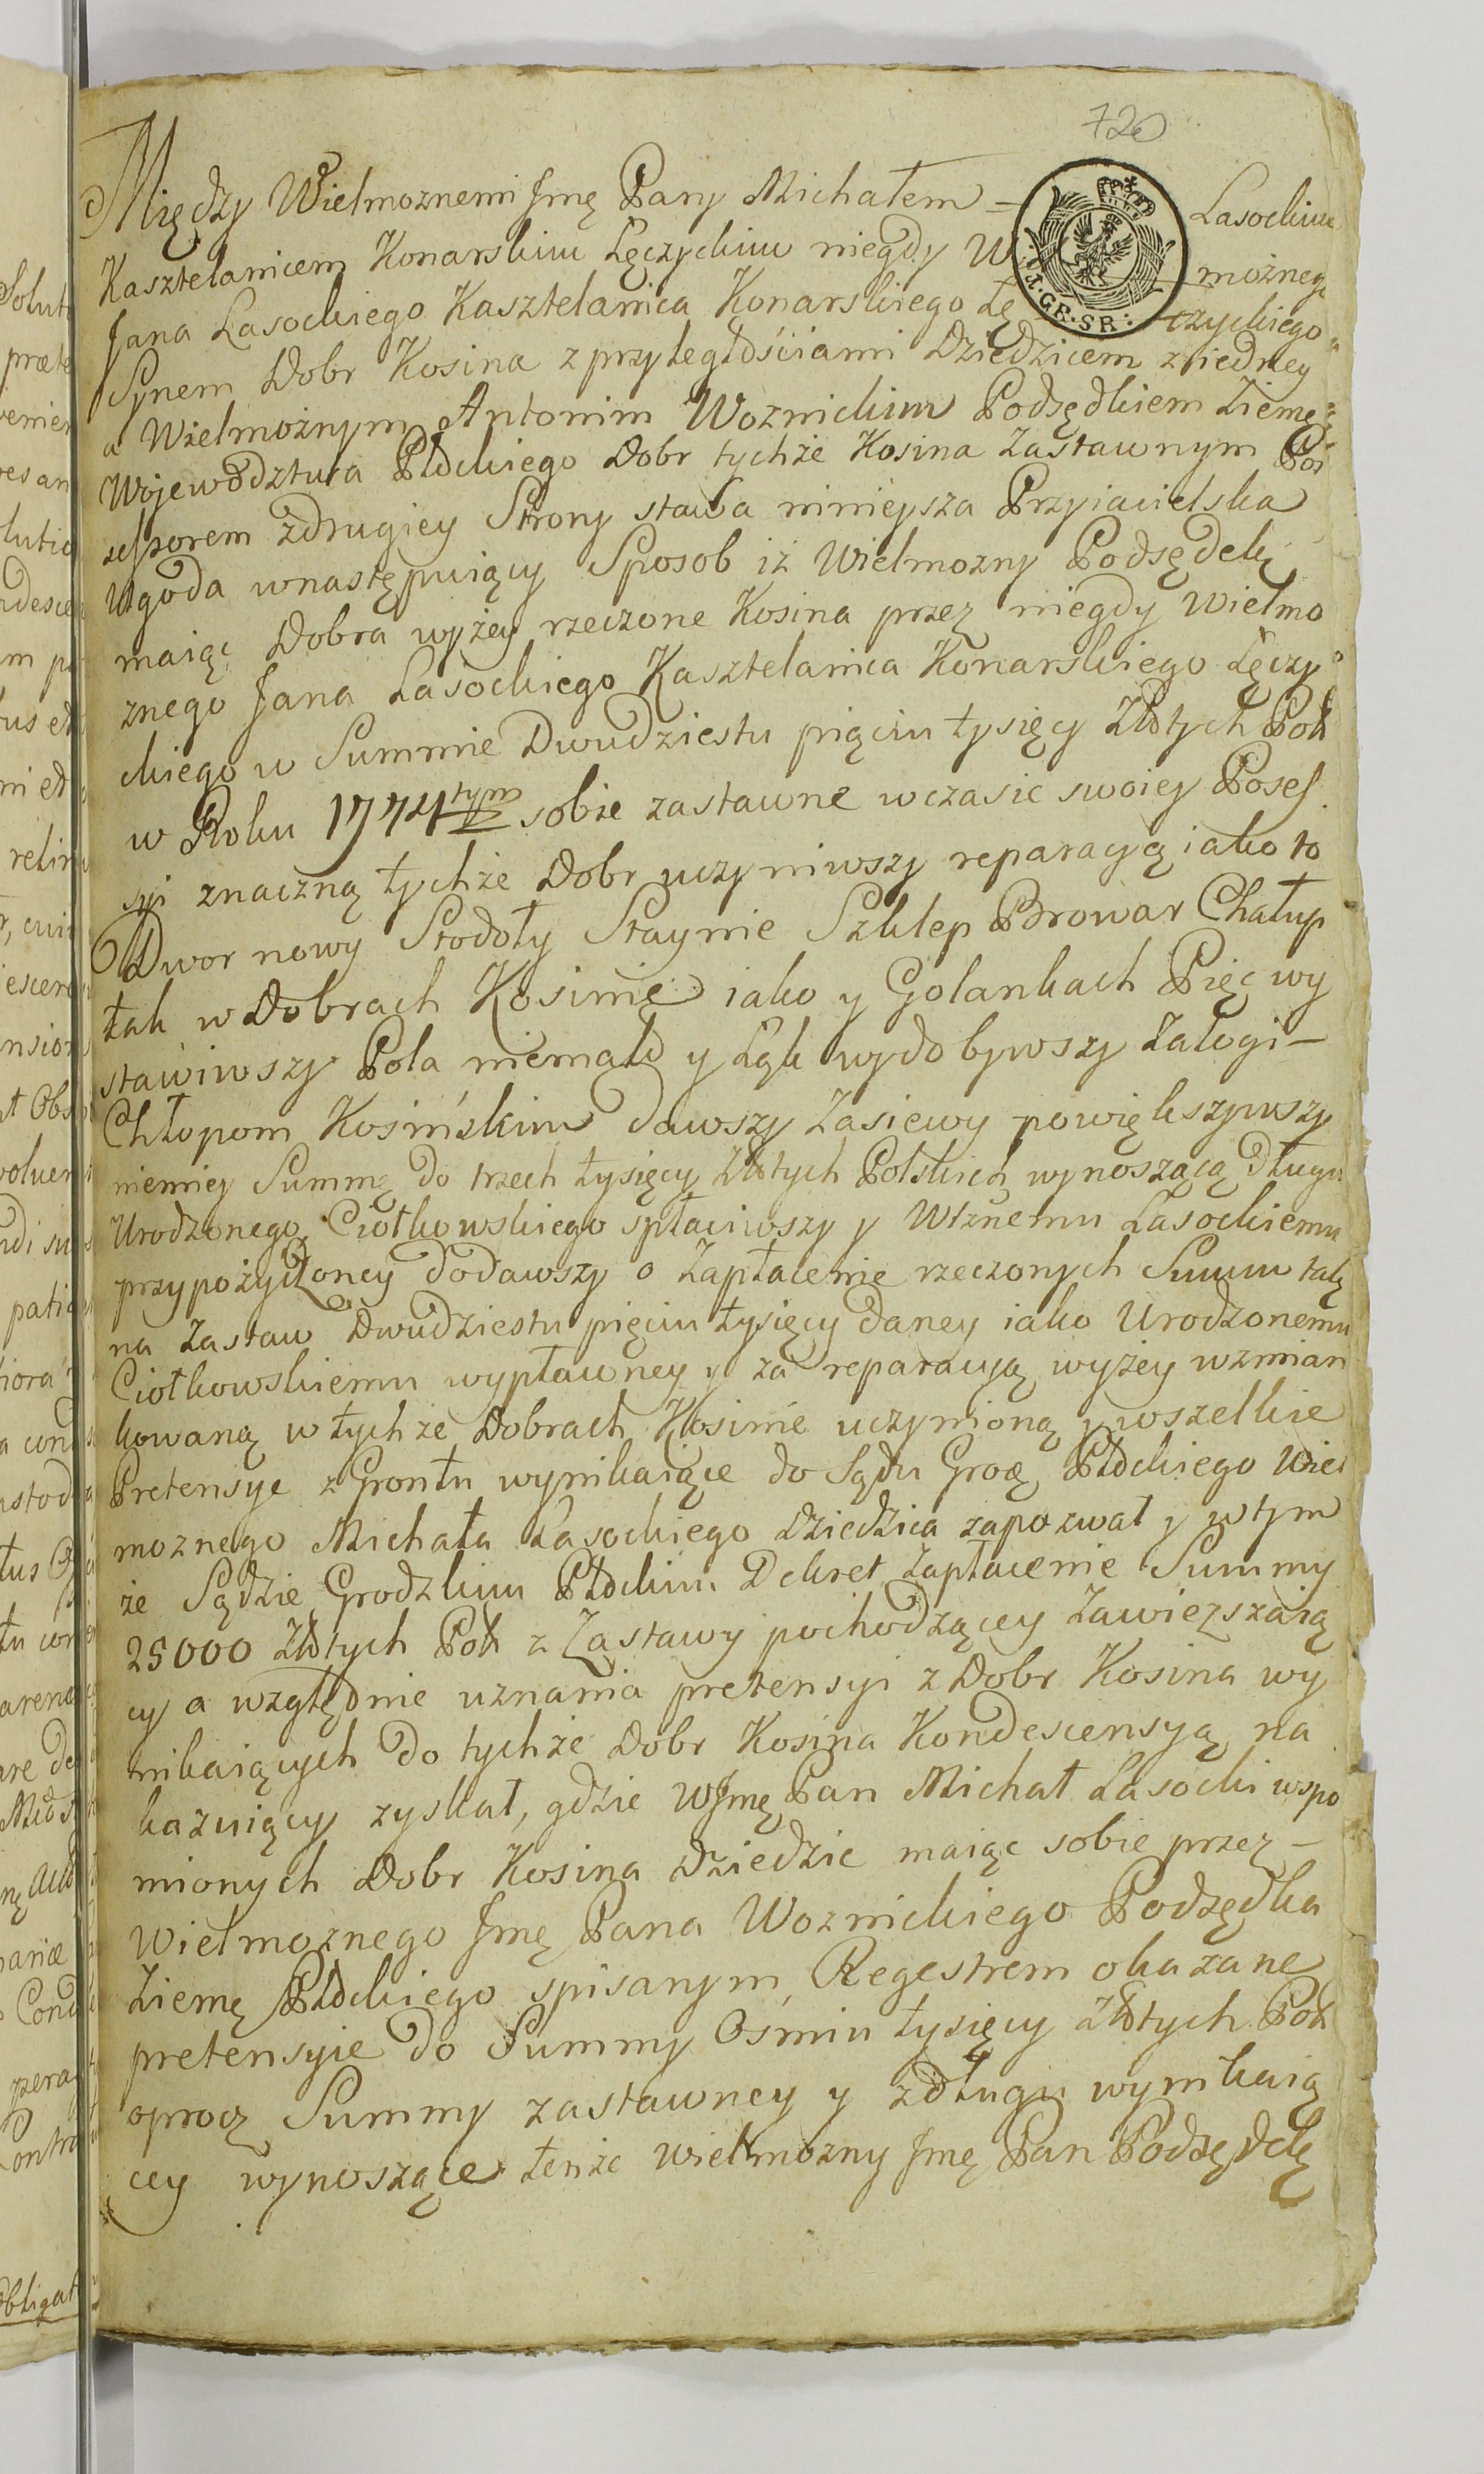 720
Między Wielmoznemi Jmę Pany Michałem – Lasockim
Kasztelanicem Konarskim Łęczyckim niegdy Wiel możnego
Jana Lasockiego Kasztelanica Konarskiego Łę czyckiego
1. GR. SR:
Synem Dobr Kosina z przyległościami Dziedzicem z iedney
a Wielmożnym Antonim Woznickim Podsędkiem Ziemę:
Wojewodztwa Płockiego Dobr tychże Kosina Zastawnym Pos
sessorem zdrugiey Strony stawa ninieysza Przyiacielska
Ugoda wnastępuiący Sposob iż Wielmozny Podsędek
maiąc Dobra wyżey rzeczone Kosina przez niegdy Wielmo
znego Jana Lasockiego Kasztelanica Konarskiego Łęczy
ckiego w Summie Dwudziestu pięciu tysięcy Złłtych Pol
w Roku 1774tym sobie zastawne wczasie swoiey Posses
syi znaczną tychże Dobr uczyniwszy reparacyą iako to
Dwor nowy Stodoły Staynie Szklep Browar Chałup
tak w Dobrach Kosinie iako y Golankach Pięc wy
stawiwszy Pola niemało y Łąk wydobywszy Załogi –
Chłopom Kosińskim dawszy Zasiewy powiększywszy
niemniey Summę do trzech tysięcy Złłtych Polskich wynoszącą długu
Urodzonego Ciołkowskiego spłaciwszy y Wlznemu Lasockiemu
przypożyczoney dodawszy o Zapłacenie rzeczonych Summ tak
na Zastaw Dwudziestu pięciu tysięcy daney iako Urodzonemu
Ciołkowskiemu wypławney y za reparacyą wyżey wzmian
kowaną w tychże Dobrach Kosinie uczynioną y wszelkie
Pretensye z Grontu wynikaiące do Sądu Grodz Płockiego Wiel
moznego Michała Lasockiego Dziedzica zapozwał y w tym
że Sądzie Grodzkim Płockim Dekret Zapłacenie Summy
25000 Złłtych Pol z Zastawy pochodzącey Zawierszaią
cy a względnie uznania pretensyi z Dobr Kosina wy
nikaiących do tychże Dobr Kosina Kondescensyą na
kazuiący zyskał, gdzie WJmę Pan Michał Lasocki wspo
mionych Dobr Kosina Dziedzic maiąc sobie przez –
Wielmoznego Jmę Pana Woznickiego Podsędka
Ziemę Płockiego spisanym Regestrem okazane
pretensyie do Summy Ośmiu tysięcy Złłtych Pol
oprocz Summy zastawney y z długu wynikaią
cey wynoszące tenże wielmozny Jmę Pan Podsędek